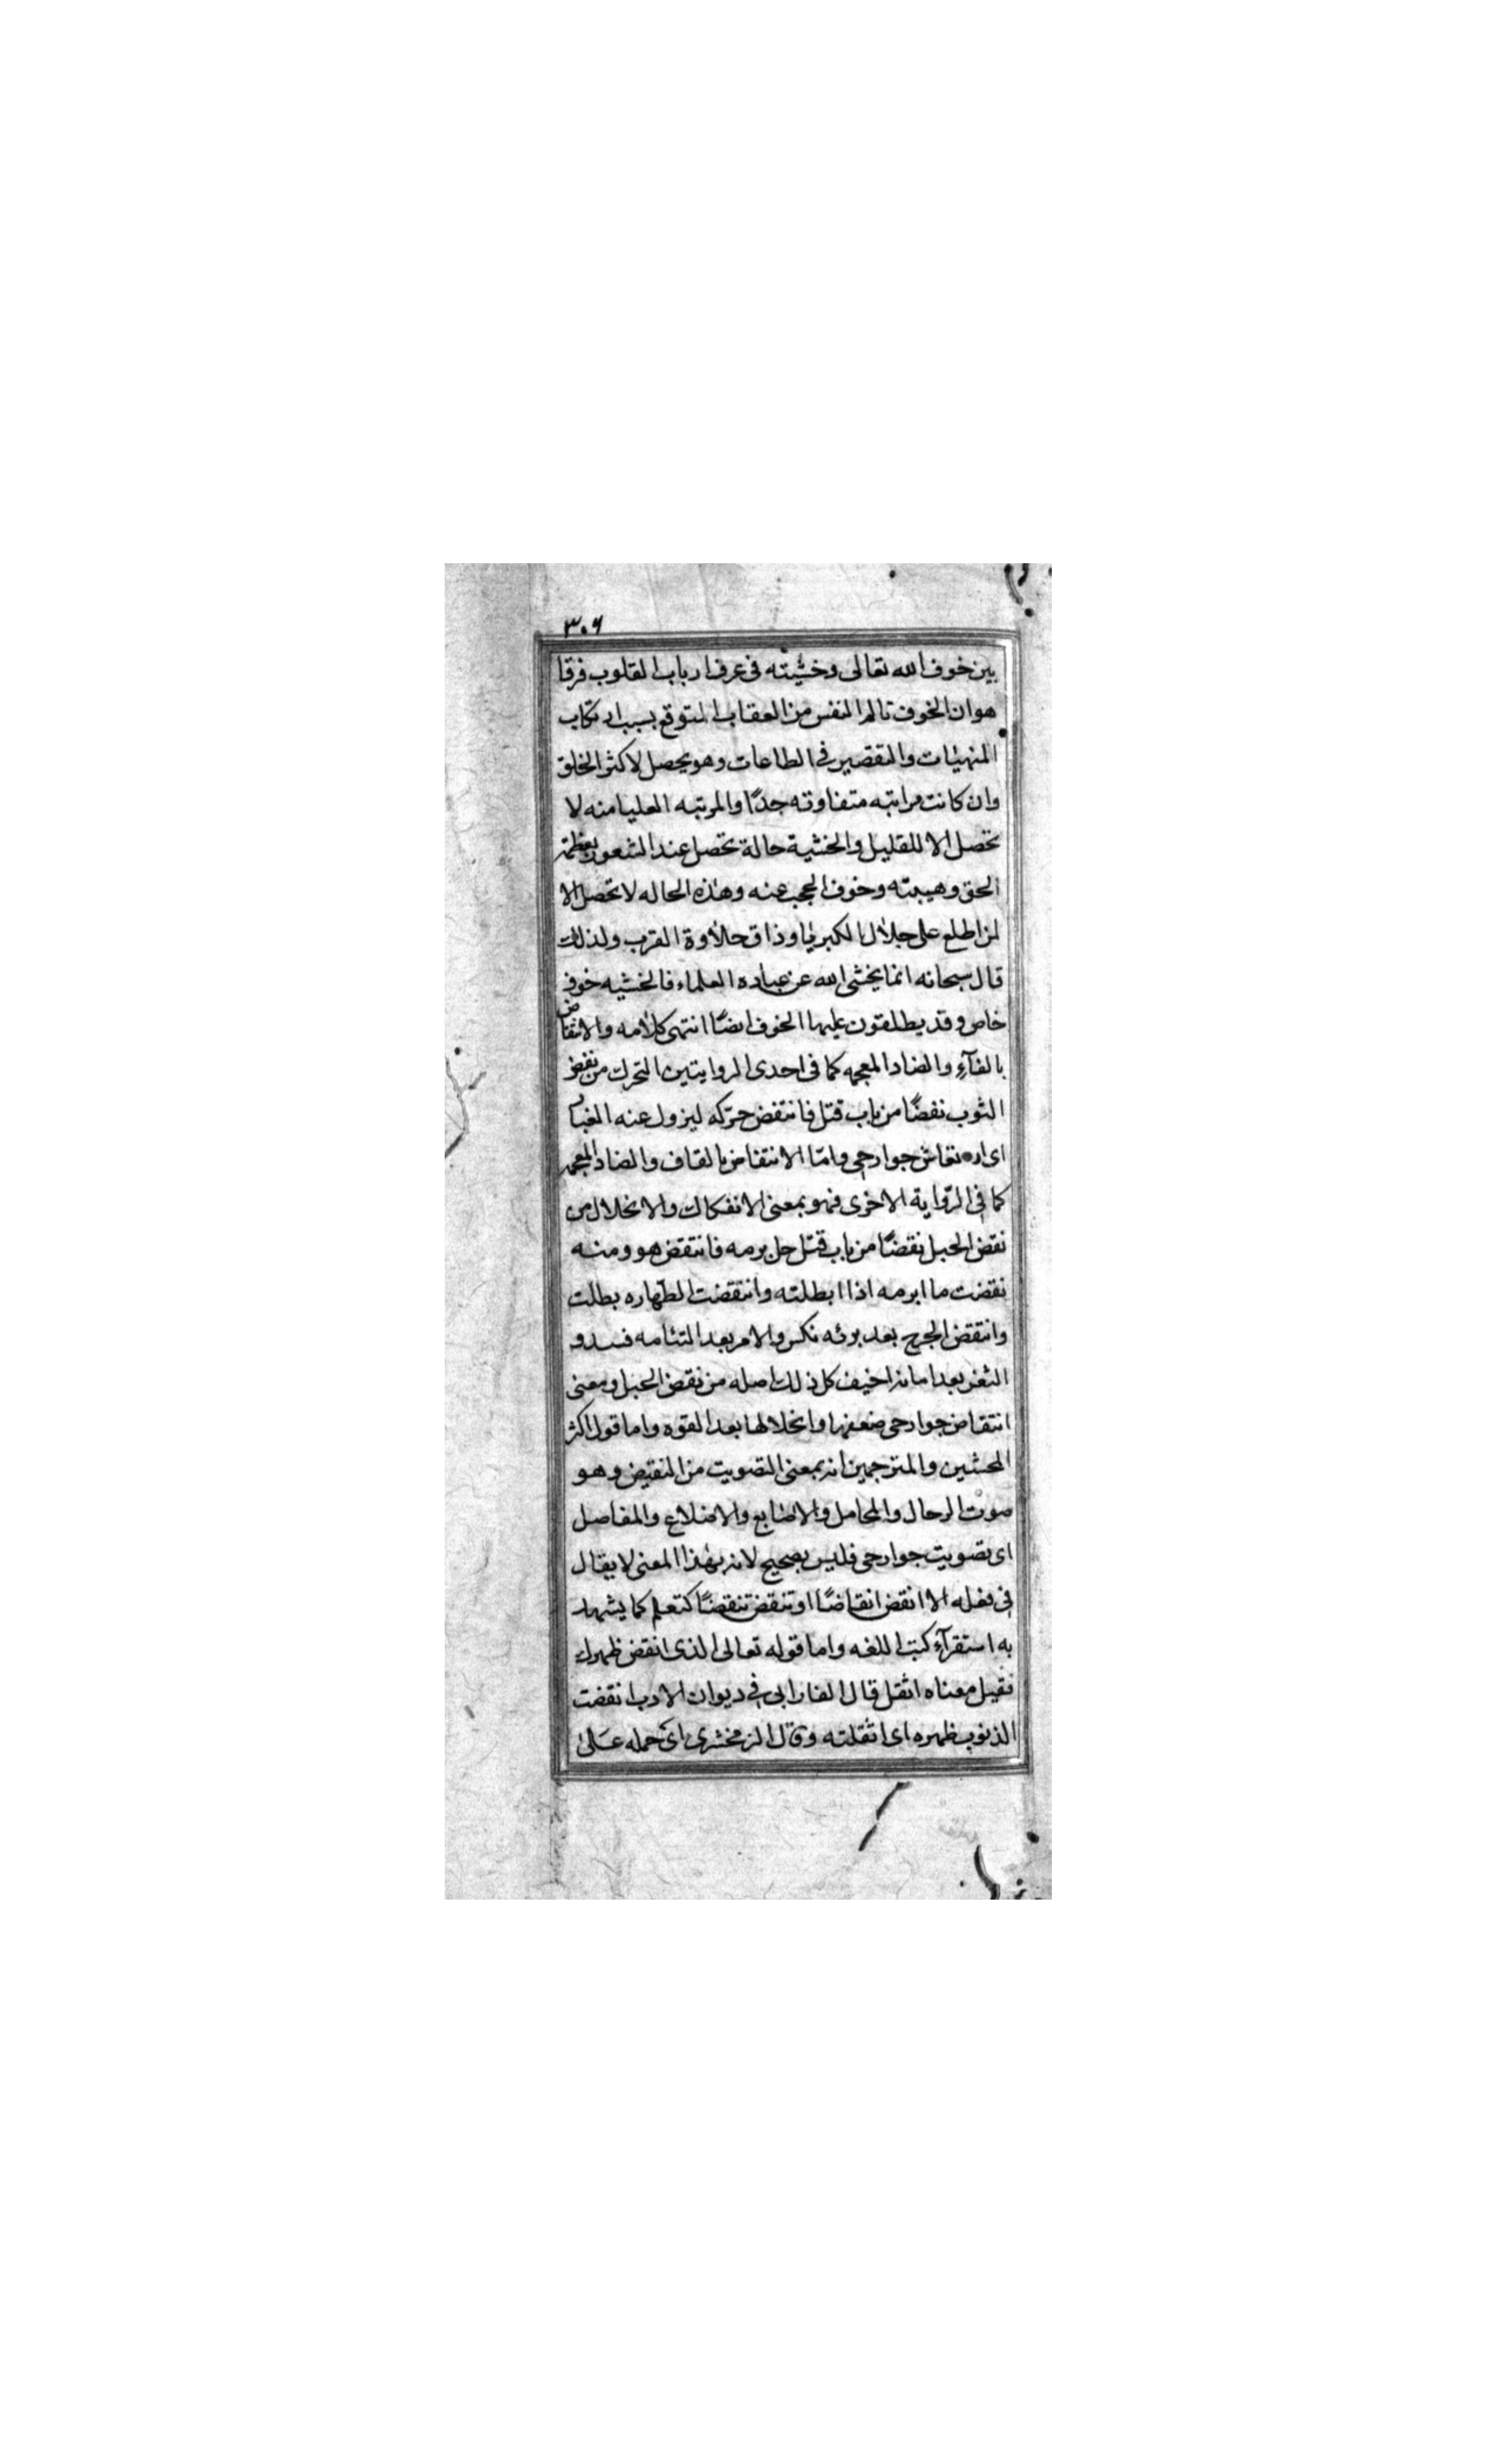 ٣٠٦
بين خوف الله تعالى وخشيته فى عرف ارباب القلوب فرقا
هو ان الخوف تالم النفس من العقاب المتوقع بسبب ارتكاب
المنهيات والتقصير فى الطاعات وهو يحصل لاكثر الخلق
وان كانت مراتبه متفاوته جدًا والمرتبه العليا منه لا
تحصل الا للقليل والخشية حالة تحصل عند الشعور بعظمة
الحق وهيبته وخوف الحجب عنه وهذه الحاله لا تحصل الا
لمن اطلع على جلال الكبريا وذاق حلاوة القرب ولذلك
قال سبحانه انما يخشى الله عن عباده العلماء فالخشيه خوف
خاص وقد يطلقون عليها الخوف ايضًا انتهى كلامه والانتفاض
بالفآء والضاد المعجمه كما فى احدى الروايتين التحرك من نفض
الثوب نفضًا من باب قتل فانتفض حرّكه ليزول عنه الغبار
اى ارتعاش جوارحى وامّا الانتقاض بالقاف والضاد المعجمه
كما فى الرّواية الاخرى فهو بمعنى الانفكاك والانحلال من
نقض الحبل نقضًا من باب قتل حل برمه فانتقض هو ومنه
نقضت ما ابرمه اذا ابطلته وانتقضت الطهاره بطلت
وانتقض الجرح بعد برئه نكس والامر بعد التئامه فسد و
الثغر بعد امانه اخيف كل ذلك اصله من نقض الحبل ومعنى
انتقاض جوارحى ضعفها وانحلالها بعد القوه واما قول اكثر
المحشين والمترجمين انه بمعنى التصويت من النقيض وهو
صوت الرحال والمحامل والاصابع والاضلاع والمفاصل
اى تصويت جوارحى فليس بصحيح لانه بهذا المعنى لا يقال
فى فعله الا انقض انقاضًا او تنقض تنقضًا كتعلم كما يشهد
به استقرآء كتب اللغه واما قوله تعالى الذى انقض ظهرك
فقيل معناه اثقل قال الفارابى فى ديوان الادب انقضت
الذنوب ظهره اى اثقلته وقال الزمخشرى اى حمله على